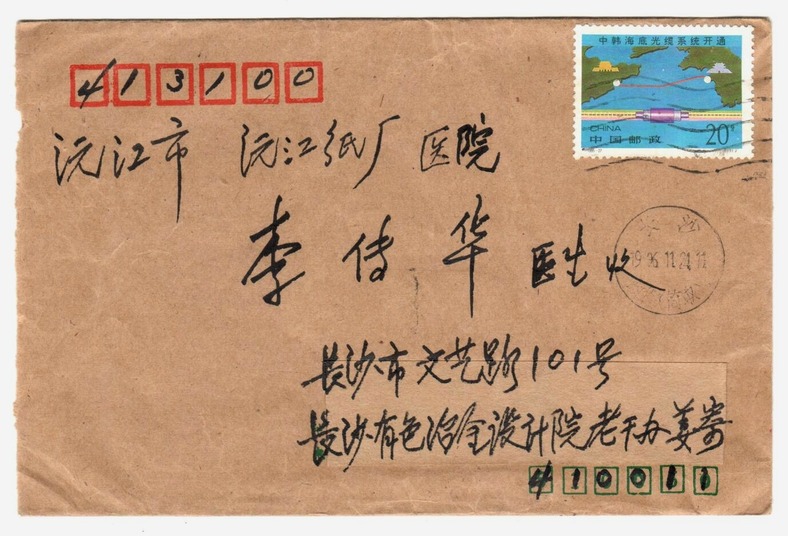 413100
中韩海底光缆系统开通
CHINA
中国邮政
20分
沅江市 沅江纸厂 医院
李传华 医生 收
1996.11.21.11
长沙市文艺路101号
长沙有色冶金设计院老干办姜寄
410011